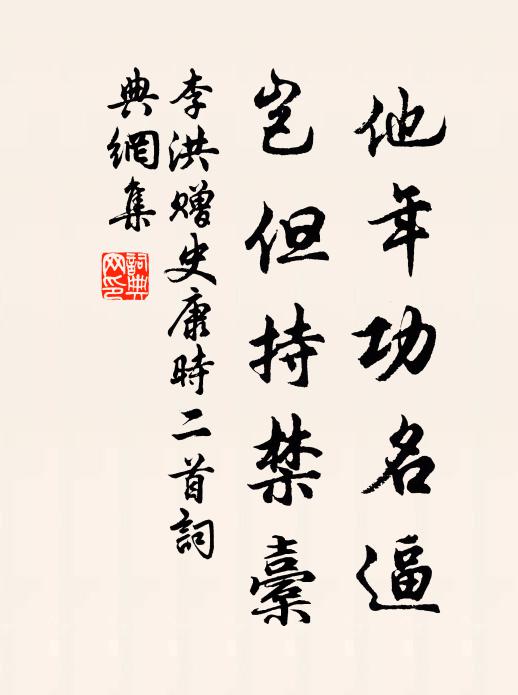 他年功名逼
岂但持禁橐
李洪赠史康時二首詞
典網集
詞典网印